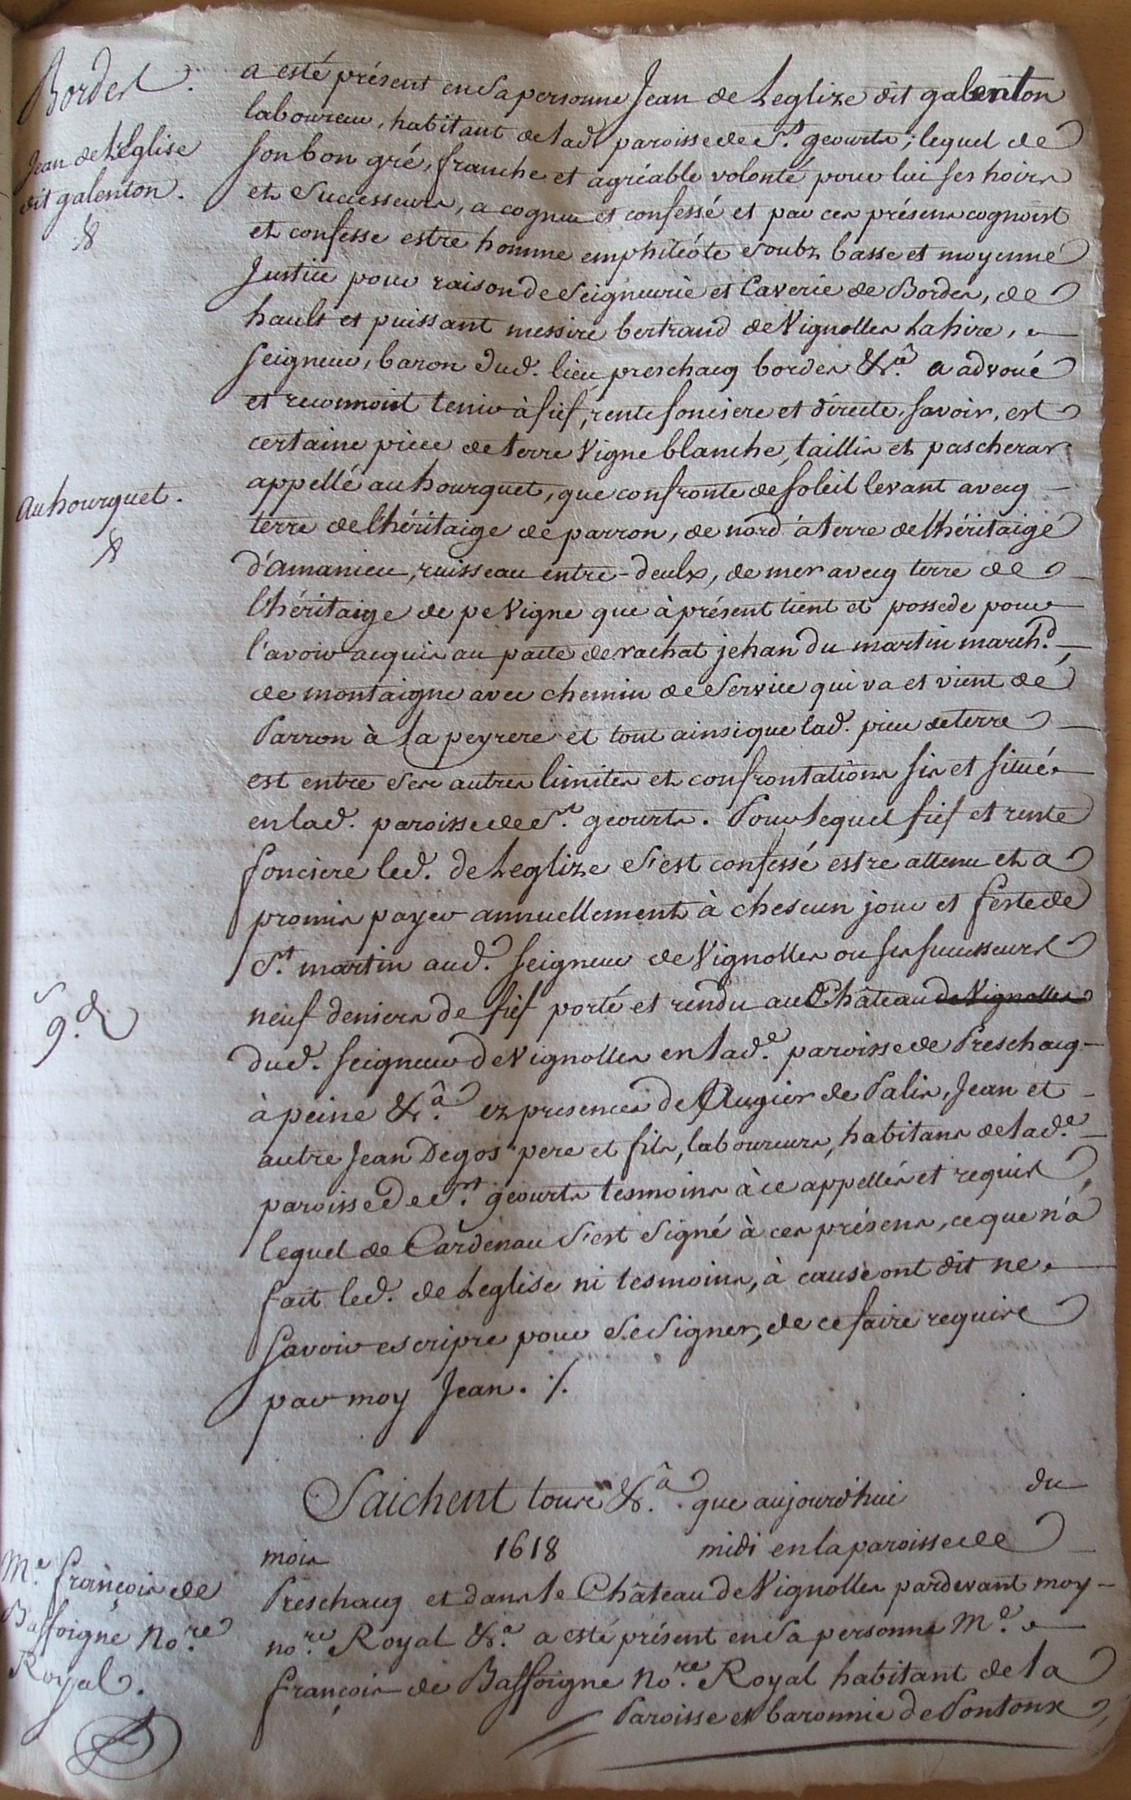 Bordes.
Jean de LEglise
dit galenton.
a esté présent en Sa personne Jean de Leglize dit galenton
laboureur, habitant de lad.e paroisse de S.t geourts; lequel de
son bon gré, franche et agréable volonté pour lui ses hoirs
et Successeurs, a cogneu et confessé et par ces présens cognoist
et confesse estre homme emphitéote soubz basse et moyenne
Justice pour raison de Seigneurie et Caverie de Bordes, de
hault et puissant messire bertrand de Vignolles Lahire,
seigneur, baron dud. lieu preschacq bordes &.a a advoué
et reconnoit tenir à fief, rente fonciere et directe, savoir, est
certaine piece de terre Vigne blanche, taillis et pascherar
appellé au hourquet, que confronte de soleil levant avecq
Au hourquet.
terre de l'héritaige de parron, de nord à terre de l'héritaige
d'amanieu, ruisseau entre-deulx, de mer avecq terre de
l'héritaige de peVigne que à présent tient et possede pour
l'avoir acquis au pacte de rachat jehan du martin march.d
de montaigne avec chemin de Service qui va et vient de
Parron à la peyrere et tout ainsi que lad. piece de terre
est entre Ses autres limites et confrontations sis et situé
en lad. paroisse de S.t geourts. Pour lequel fief et rente
fonciere led. de Leglize s'est confessé estre attenu et a
promis payer annuellement à chescun jour et feste de
S.t martin aud. seigneur de Vignolles ou ses successeurs
9.d
neuf deniers de fief porté et rendu au Château de Vignolles
dud. seigneur de Vignolles en lad.e paroisse de Preschacq
à peine &.a ez presences de Augier de Palis, Jean et
autre Jean Degos pere et fils, laboureurs, habitans de lad.e
paroisse de S.t geourts tesmoins à ce appellés et requis
lequel de Cardenau s'est signé à ces présens, ce que n'a
fait led. de Leglise ni tesmoins, à cause ont dit ne
savoir escripre pour Se Signer, de ce faire require
par moy Jean. ./.
Saichent tous &.a que aujourd'hui du
mois 1618 midi en la paroisse de
M.e françois de
Bassoigne No.re
Royal.
Preschacq et dans le Château de Vignolles pardevant moy
no.re Royal &.a a esté présent en Sa personne M.e
françois de Bassoigne No.re Royal habitant de la
Paroisse et baronnie de Pontonx